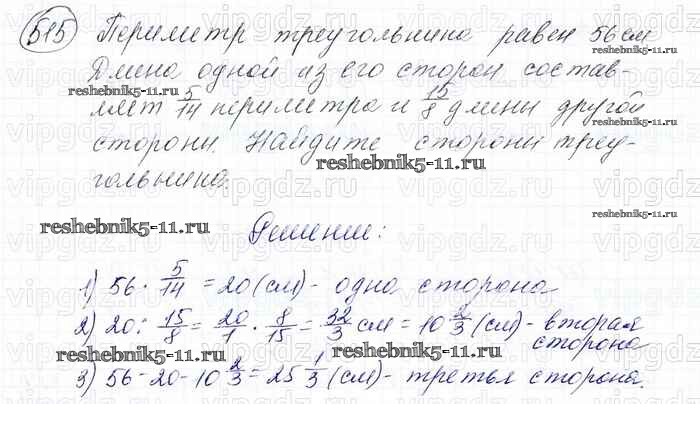 515 Периметр треугольника равен 56 см
Длина одной из его сторон состав-
ляет 5/14 периметра и 15/8 длины другой
стороны. Найдите стороны треу-
гольника.
Решение:
1) 56 · 5/14 = 20 (см) - одна сторона
2) 20 : 15/8 = 20/1 · 8/15 = 32/3 см = 10 2/3 (см) - вторая
сторона
3) 56 - 20 - 10 2/3 = 25 1/3 (см) - третья сторона.
reshebnik5-11.ru
reshebnik5-11.ru
reshebnik5-11.ru
reshebnik5-11.ru
reshebnik5-11.ru
reshebnik5-11.ru
reshebnik5-11.ru
reshebnik5-11.ru
vipgdz.ru